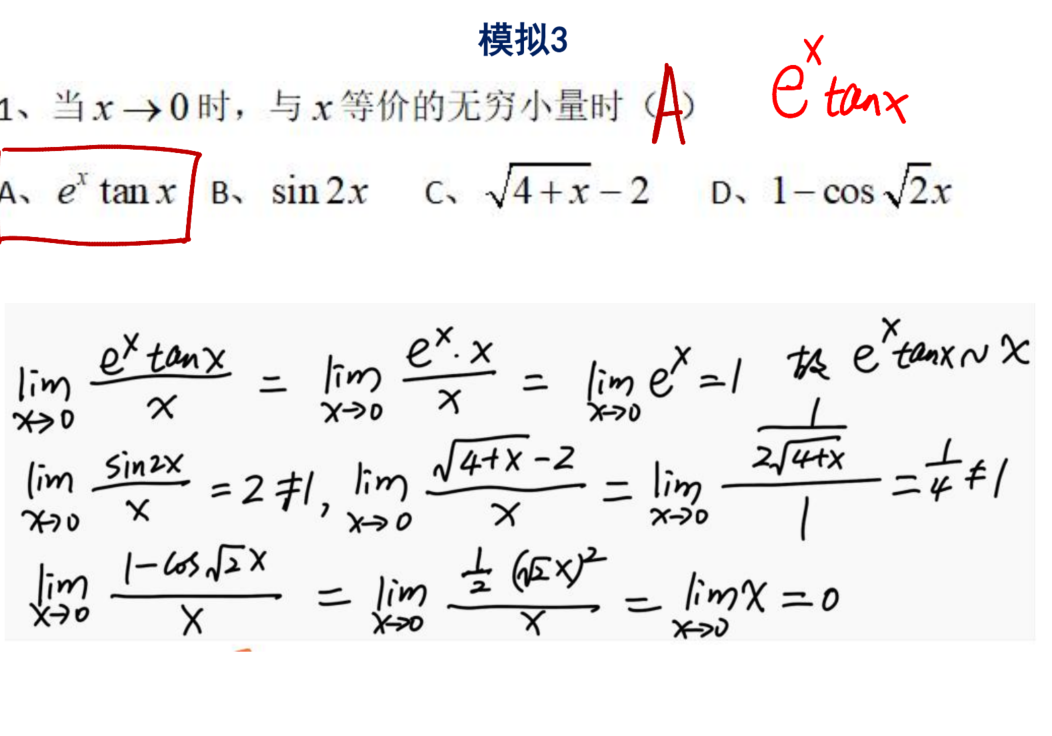 模拟3
1、当 x → 0 时，与 x 等价的无穷小量时（A） e^x tanx
A、 e^x tan x B、 sin 2x C、 √(4+x) − 2 D、 1 − cos √2x
lim_{x→0} (e^x tanx)/x = lim_{x→0} (e^x · x)/x = lim_{x→0} e^x = 1 故 e^x tanx ~ x
lim_{x→0} (sin2x)/x = 2 ≠ 1, lim_{x→0} (√(4+x) - 2)/x = lim_{x→0} (1/(2√(4+x)))/1 = 1/4 ≠ 1
lim_{x→0} (1 - cos√2x)/x = lim_{x→0} (1/2 (√2x)^2)/x = lim_{x→0} x = 0